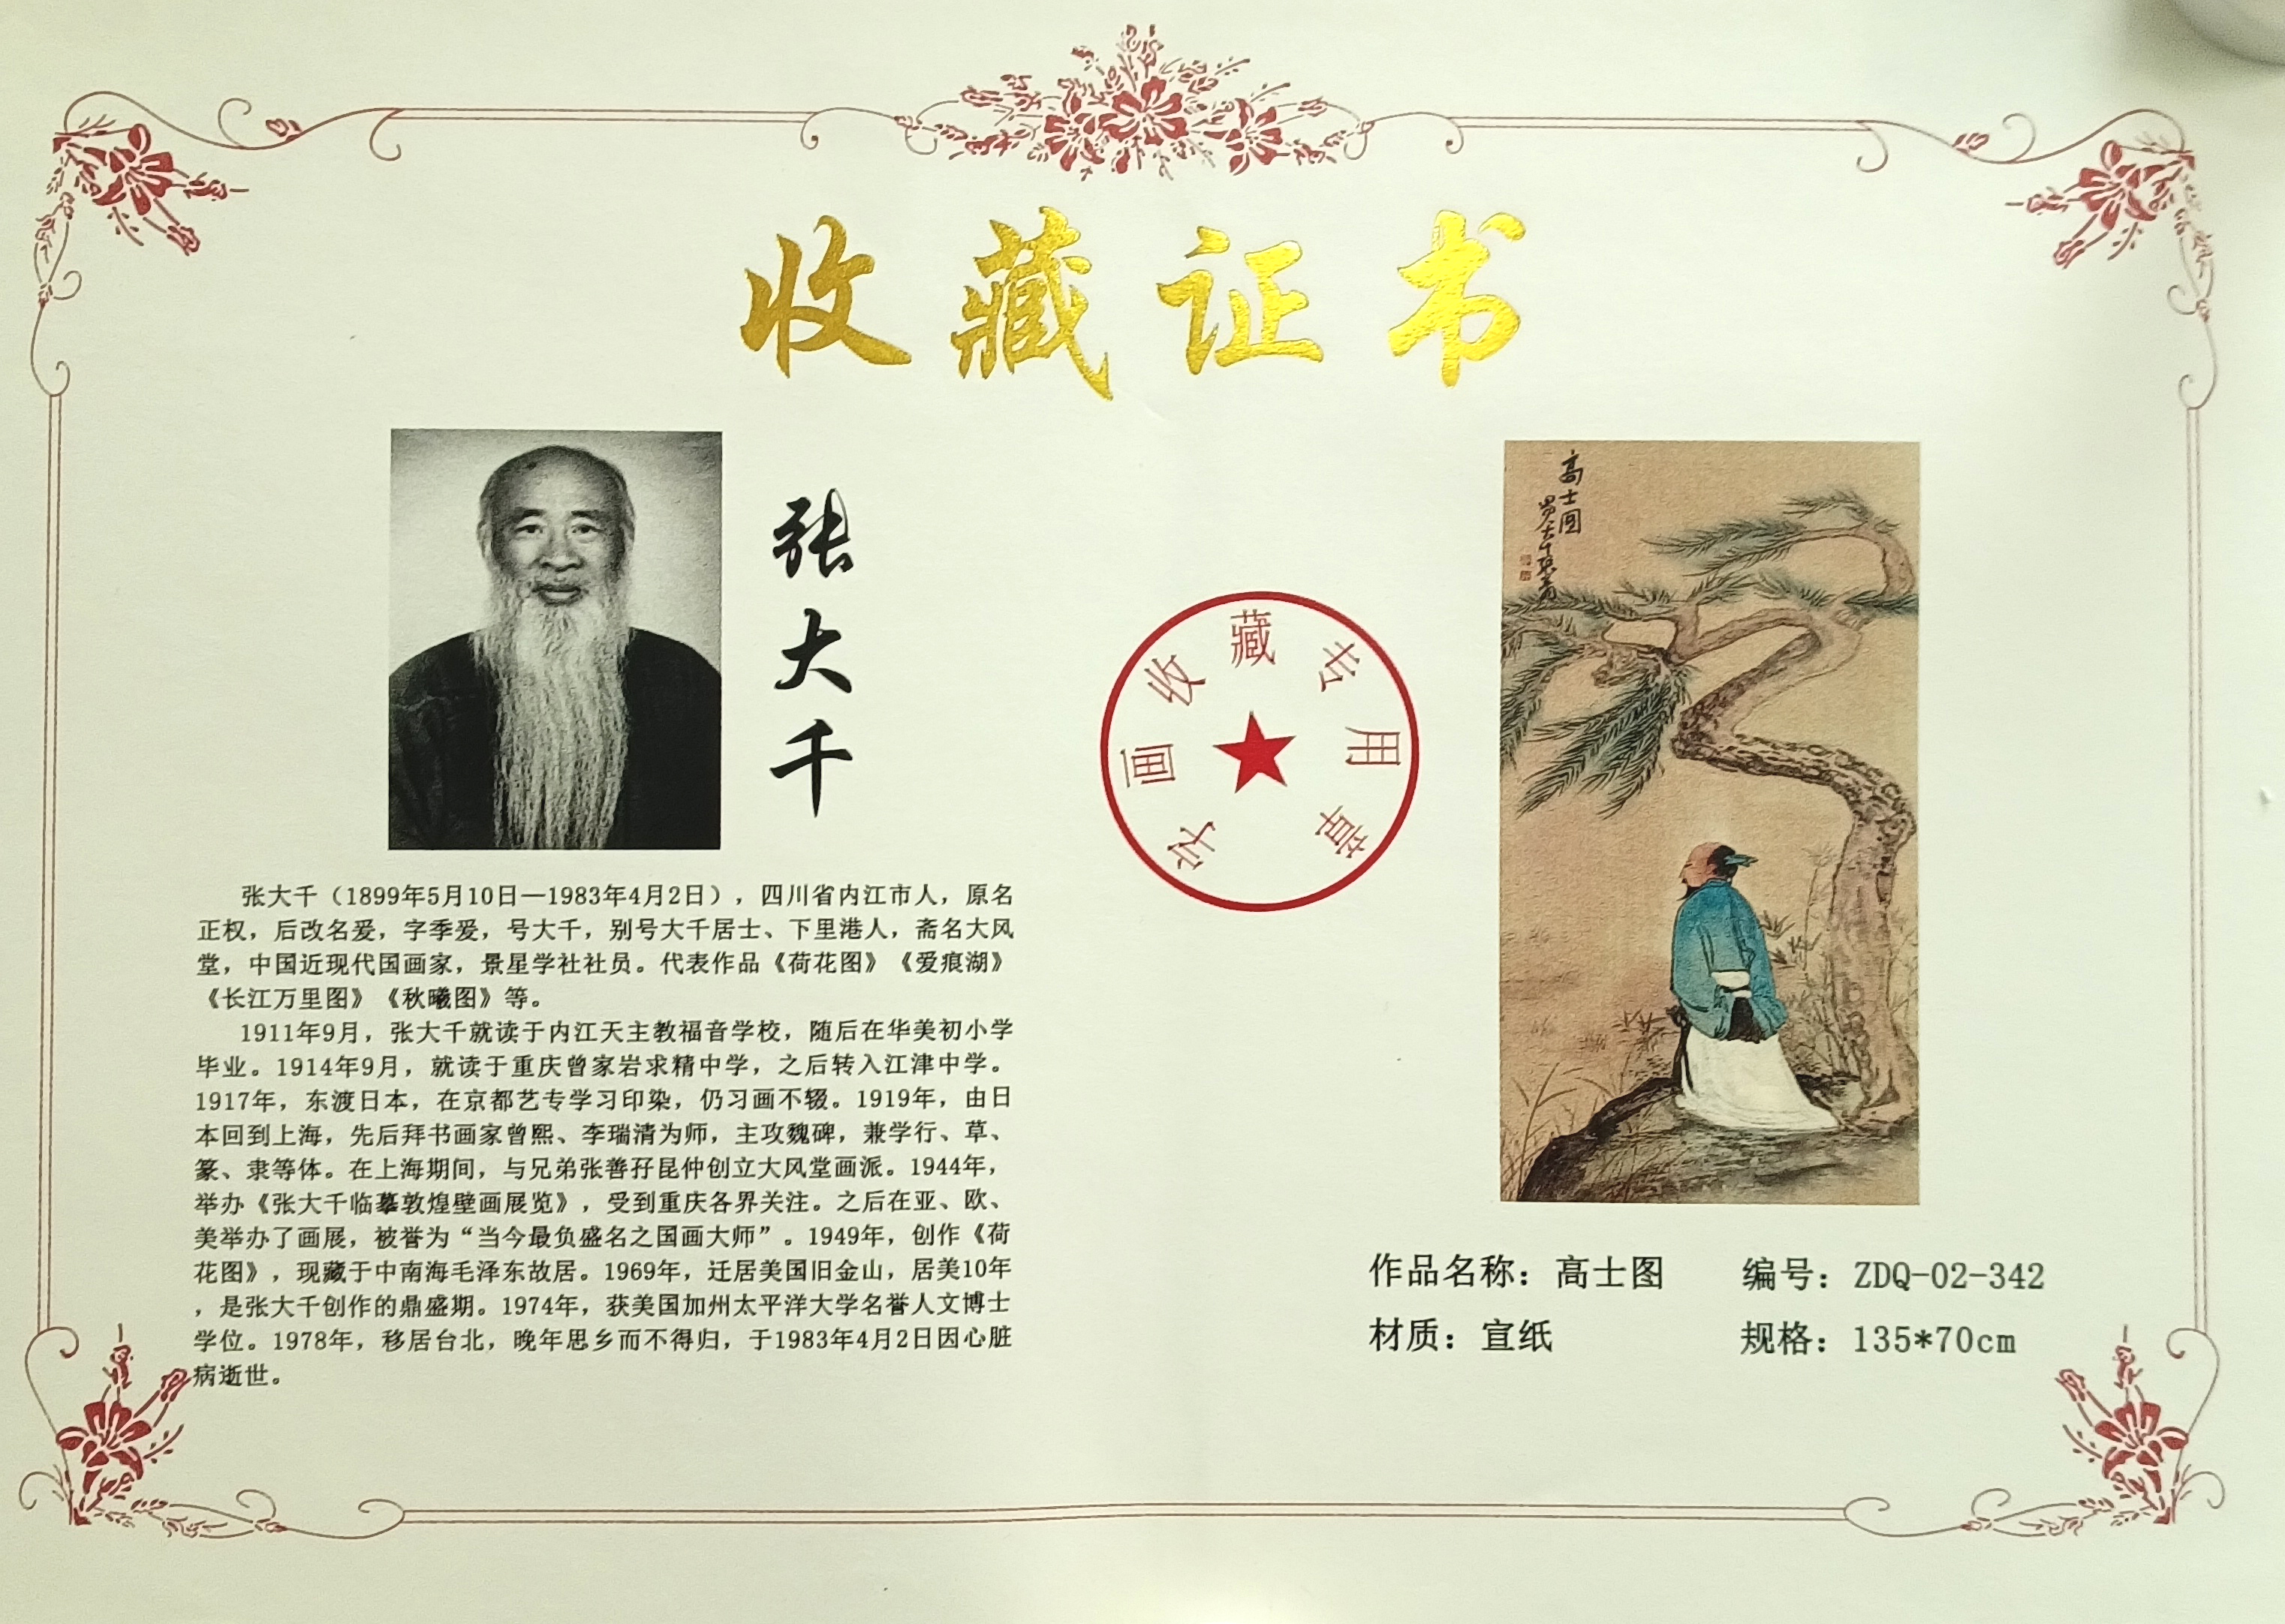 收藏证书
张大千
张大千（1899年5月10日—1983年4月2日），四川省内江市人，原名
正权，后改名爱，字季爱，号大千，别号大千居士、下里港人，斋名大风
堂，中国近现代国画家，景星学社社员。代表作品《荷花图》《爱痕湖》
《长江万里图》《秋曦图》等。
1911年9月，张大千就读于内江天主教福音学校，随后在华美初小学
毕业。1914年9月，就读于重庆曾家岩求精中学，之后转入江津中学。
1917年，东渡日本，在京都艺专学习印染，仍习画不辍。1919年，由日
本回到上海，先后拜书画家曾熙、李瑞清为师，主攻魏碑，兼学行、草、
篆、隶等体。在上海期间，与兄弟张善孖昆仲创立大风堂画派。1944年，
举办《张大千临摹敦煌壁画展览》，受到重庆各界关注。之后在亚、欧、
美举办了画展，被誉为“当今最负盛名之国画大师”。1949年，创作《荷
花图》，现藏于中南海毛泽东故居。1969年，迁居美国旧金山，居美10年
，是张大千创作的鼎盛期。1974年，获美国加州太平洋大学名誉人文博士
学位。1978年，移居台北，晚年思乡而不得归，于1983年4月2日因心脏
病逝世。
字画收藏专用章
高士图
作品名称：高士图 编号：ZDQ-02-342
材质：宣纸 规格：135*70cm